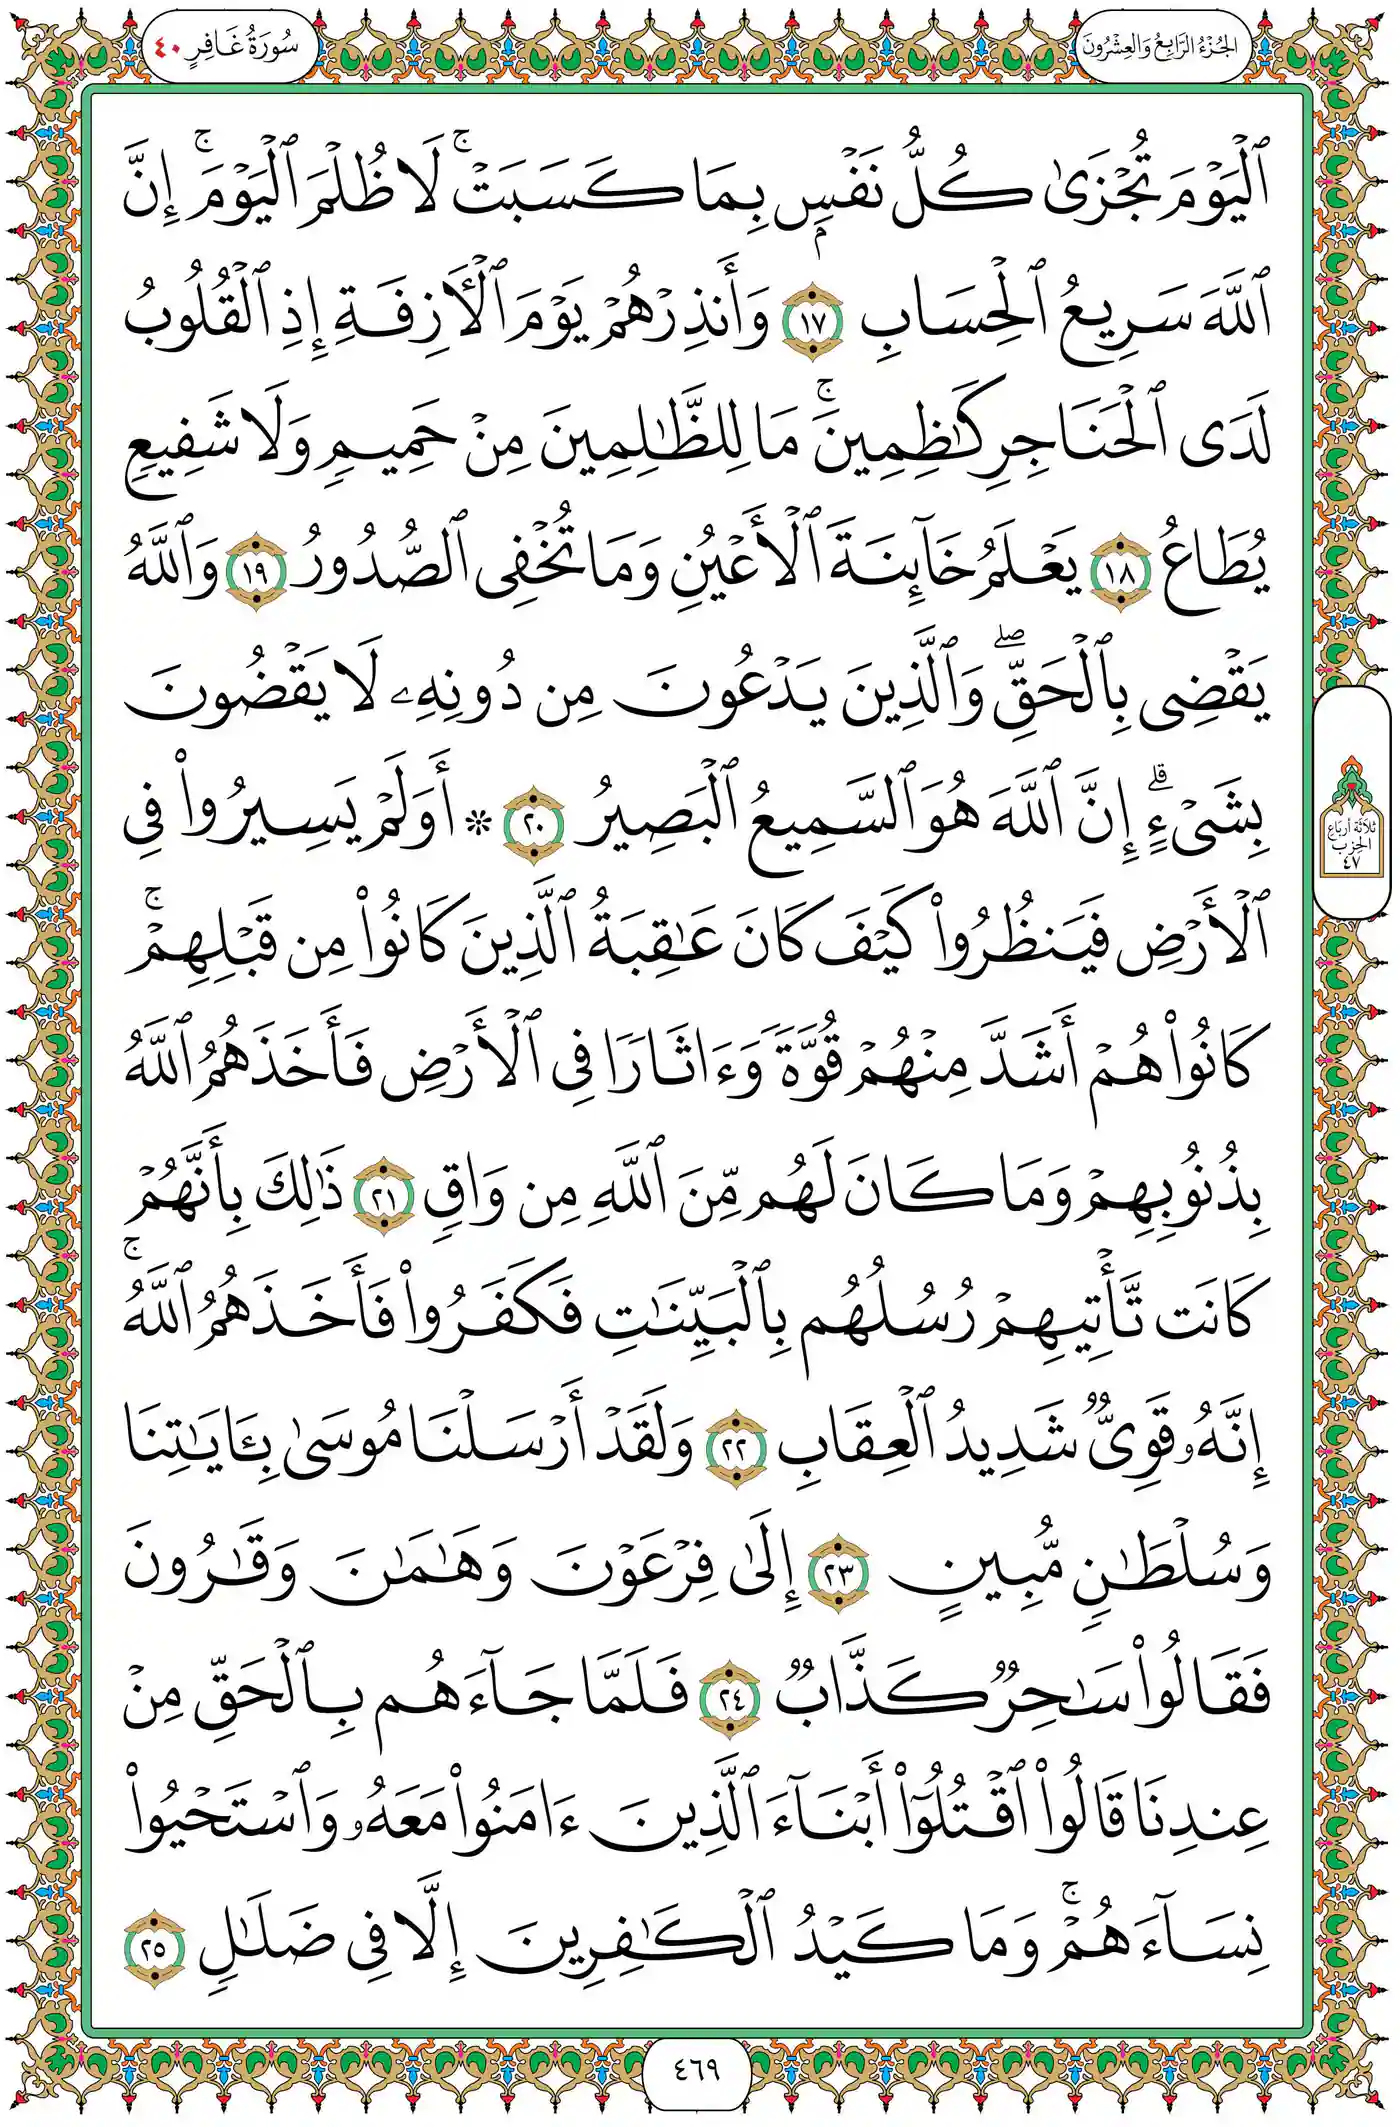 سُورَةُ غَافِرٍ ٤٠
الجُزْءُ الرَّابِعُ وَالعِشْرُونَ
ٱلْيَوْمَ تُجْزَىٰ كُلُّ نَفْسِۭ بِمَا كَسَبَتْ ۚ لَا ظُلْمَ ٱلْيَوْمَ ۚ إِنَّ
ٱللَّهَ سَرِيعُ ٱلْحِسَابِ ١٧ وَأَنذِرْهُمْ يَوْمَ ٱلْـَٔازِفَةِ إِذِ ٱلْقُلُوبُ
لَدَى ٱلْحَنَاجِرِ كَـٰظِمِينَ ۚ مَا لِلظَّـٰلِمِينَ مِنْ حَمِيمٍ وَلَا شَفِيعٍ
يُطَاعُ ١٨ يَعْلَمُ خَآئِنَةَ ٱلْأَعْيُنِ وَمَا تُخْفِى ٱلصُّدُورُ ١٩ وَٱللَّهُ
يَقْضِى بِٱلْحَقِّ ۖ وَٱلَّذِينَ يَدْعُونَ مِن دُونِهِۦ لَا يَقْضُونَ
بِشَىْءٍ ۗ إِنَّ ٱللَّهَ هُوَ ٱلسَّمِيعُ ٱلْبَصِيرُ ٢٠ ۞ أَوَلَمْ يَسِيرُوا۟ فِى
ٱلْأَرْضِ فَيَنظُرُوا۟ كَيْفَ كَانَ عَـٰقِبَةُ ٱلَّذِينَ كَانُوا۟ مِن قَبْلِهِمْ ۚ
كَانُوا۟ هُمْ أَشَدَّ مِنْهُمْ قُوَّةً وَءَاثَارًا فِى ٱلْأَرْضِ فَأَخَذَهُمُ ٱللَّهُ
بِذُنُوبِهِمْ وَمَا كَانَ لَهُم مِّنَ ٱللَّهِ مِن وَاقٍ ٢١ ذَٰلِكَ بِأَنَّهُمْ
كَانَت تَّأْتِيهِمْ رُسُلُهُم بِٱلْبَيِّنَـٰتِ فَكَفَرُوا۟ فَأَخَذَهُمُ ٱللَّهُ ۚ
إِنَّهُۥ قَوِىٌّ شَدِيدُ ٱلْعِقَابِ ٢٢ وَلَقَدْ أَرْسَلْنَا مُوسَىٰ بِـَٔايَـٰتِنَا
وَسُلْطَـٰنٍ مُّبِينٍ ٢٣ إِلَىٰ فِرْعَوْنَ وَهَـٰمَـٰنَ وَقَـٰرُونَ
فَقَالُوا۟ سَـٰحِرٌ كَذَّابٌ ٢٤ فَلَمَّا جَآءَهُم بِٱلْحَقِّ مِنْ
عِندِنَا قَالُوا۟ ٱقْتُلُوٓا۟ أَبْنَآءَ ٱلَّذِينَ ءَامَنُوا۟ مَعَهُۥ وَٱسْتَحْيُوا۟
نِسَآءَهُمْ ۚ وَمَا كَيْدُ ٱلْكَـٰفِرِينَ إِلَّا فِى ضَلَـٰلٍ ٢٥
ثَلَاثَةُ أَرْبَاعِ
الحِزْبِ
٤٧
٤٦٩